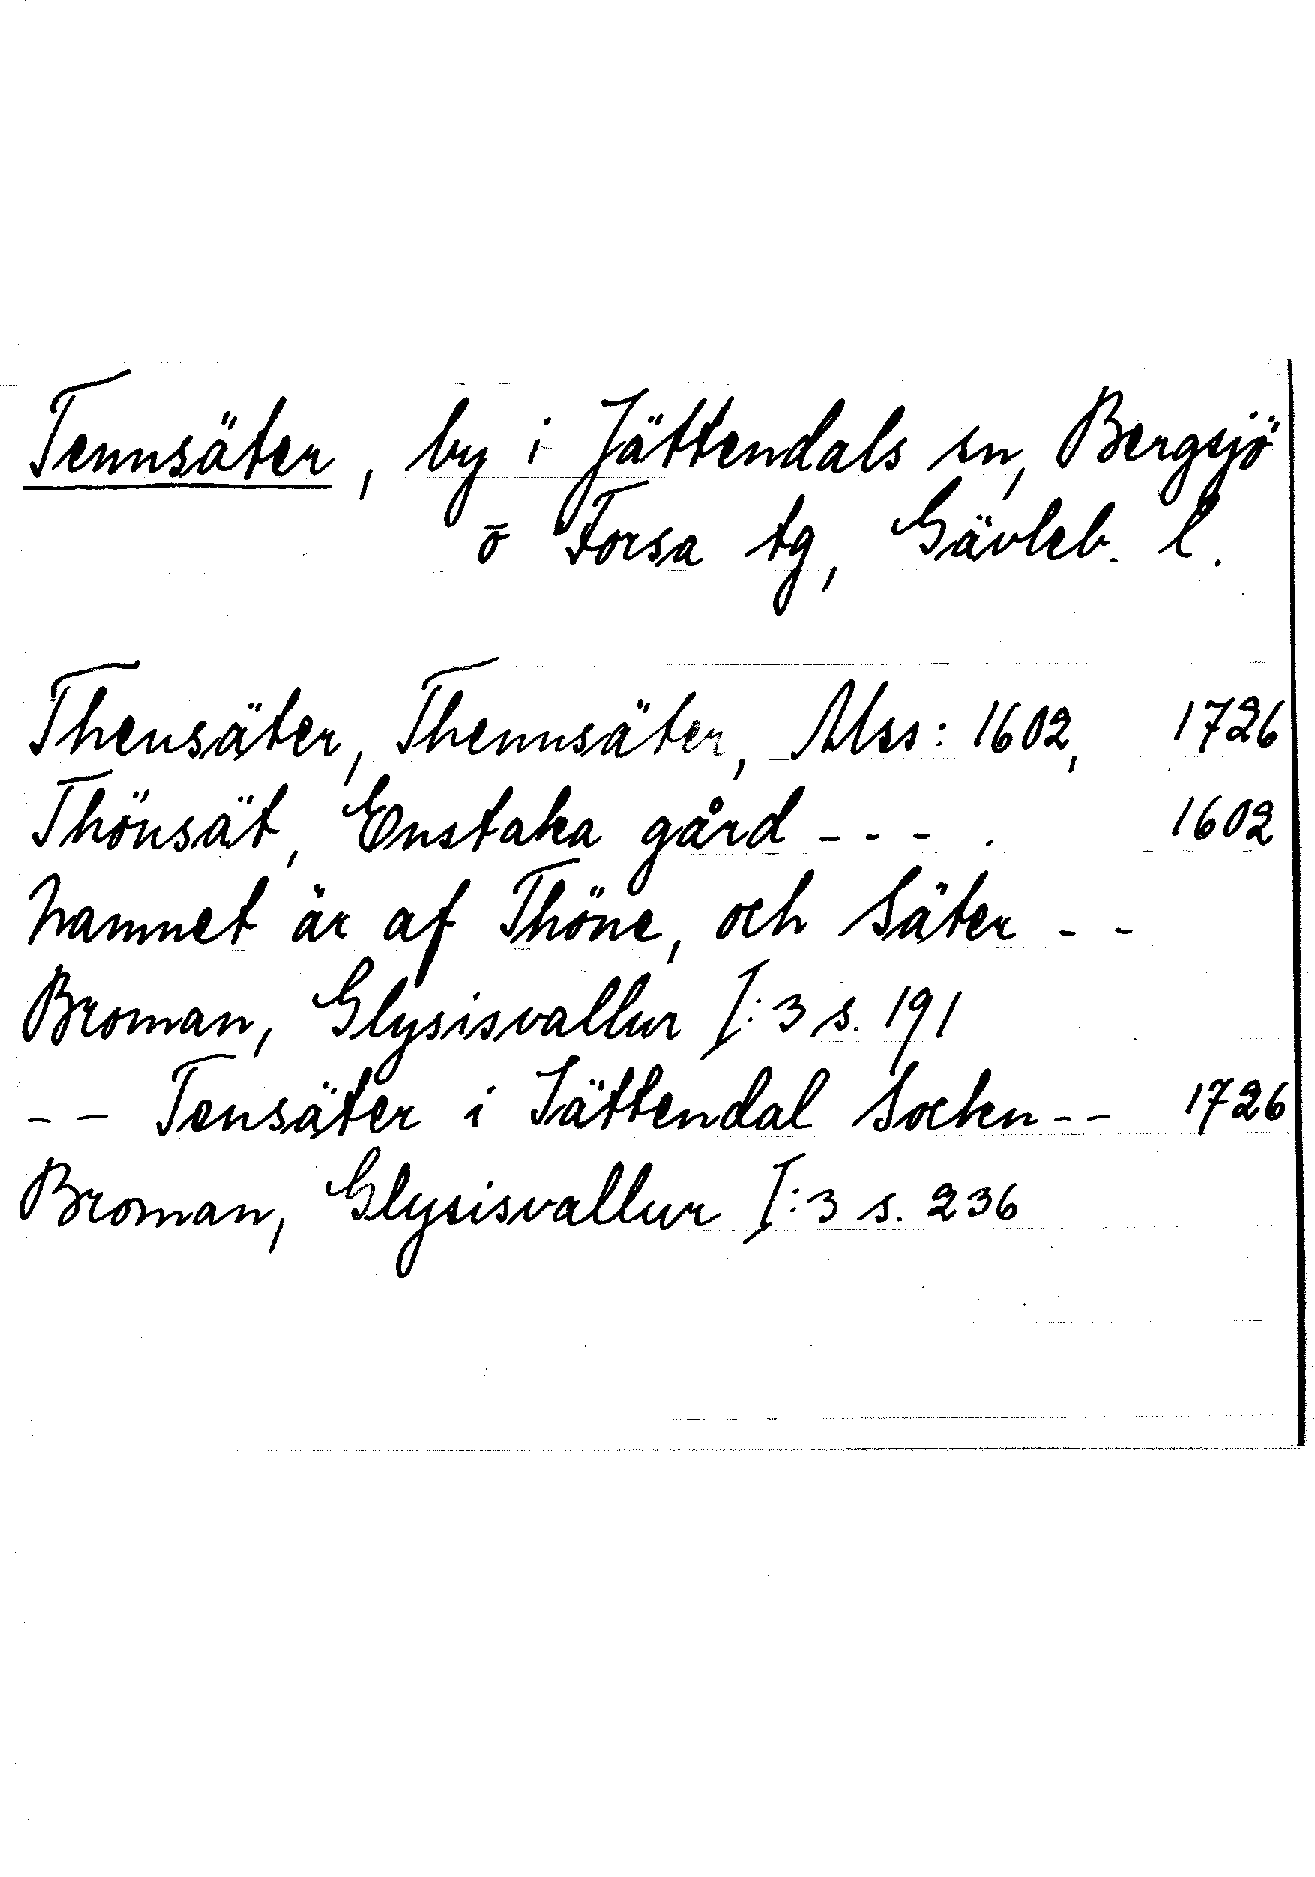 Tennsäter, by i Jättendals sn, Bergsjö
o Forsa tg, Gävleb. l.
Thensäter, Thennsäter, Mss: 1602, 1726
Thönsät, Enstaka gård - - - . 1602
namnet är af Thöne, och Säter - -
Broman, Glysisvallur I:3 s. 191
- - Tensäter i Jättendal Sockn - - 1726
Broman, Glysisvallur I:3 s. 236